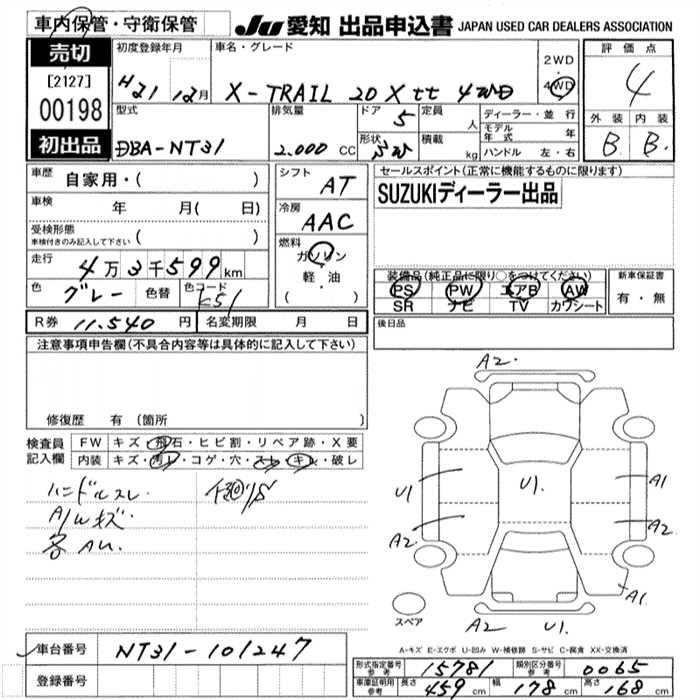 車内保管・守衛保管
JU 愛知 出品申込書 JAPAN USED CAR DEALERS ASSOCIATION
売切
[2127]
00198
初出品
初度登録年月
H21 12月
車名・グレード
X-TRAIL 20Xtt 4WD
2WD
4WD
評価点
4
外装 内装
B. B.
型式
DBA-NT31
排気量
2.000 CC
ドア 5
形状 SW
定員 人
積載 kg
ディーラー・並行
モデル年式 年
ハンドル 左・右
車歴 自家用・( )
車検 年 月( 日)
受検形態
車検付きのみ記入して下さい ( )
走行 4万3千599km
色 グレー 色替 色コード K51
R券 11.540円 名変期限 月 日
シフト AT
冷房 AAC
燃料
ガソリン
軽・油
( )
セールスポイント(正常に機能するものに限ります)
SUZUKIディーラー出品
装備品(純正品に限り○をつけてください)
PS PW エアB AW
SR ナビ TV カワシート
新車保証書
有・無
後日品
注意事項申告欄(不具合内容等は具体的に記入して下さい)
修復歴 有 (箇所 )
検査員記入欄
FW キズ・飛石・ヒビ割・リペア跡・X要
内装 キズ・汚レ・コゲ・穴・スレ・キレ・破レ
ハンドルスレ
A/Wキズ
各AU.
A2.
U1
A2
U1.
A1
A2.
A1.
A2 U1.
スペア
A-キズ E-エクボ U-凹み W-補修跡 S-サビ C-腐食 XX-交換済
車台番号 NT31-101247
登録番号
形式指定番号 参考 15781 類別区分番号 参考 0065
車庫証明用 参考 長さ 459cm 幅 178cm 高さ 168cm